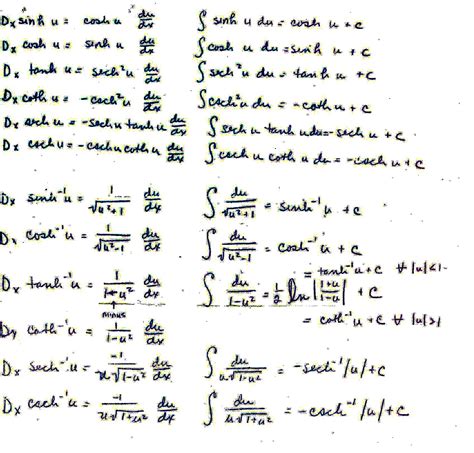 Dₓ sinh u = cosh u du/dx    ∫ sinh u du = cosh u + c
Dₓ cosh u = sinh u du/dx    ∫ cosh u du = sinh u + c
Dₓ tanh u = sech²u du/dx    ∫ sech²u du = tanh u + c
Dₓ coth u = -csch²u du/dx    ∫ csch²u du = -coth u + c
Dₓ sech u = -sech u tanh u du/dx    ∫ sech u tanh u du = -sech u + c
Dₓ csch u = -csch u coth u du/dx    ∫ csch u coth u du = -csch u + c
Dₓ sinh⁻¹u = 1/√(u²+1) du/dx    ∫ du/√(u²+1) = sinh⁻¹u + c
Dₓ cosh⁻¹u = 1/√(u²-1) du/dx    ∫ du/√(u²-1) = cosh⁻¹u + c
= tanh⁻¹u + c ∀ |u|<1
Dₓ tanh⁻¹u = 1/(1+u²) du/dx    ∫ du/(1-u²) = 1/2 ln |(1+u)/(1-u)| + c
↑ minus
= coth⁻¹u + c ∀ |u|>1
Dₓ coth⁻¹u = 1/(1-u²) du/dx
Dₓ sech⁻¹u = -1/(u√(1-u²)) du/dx    ∫ du/(u√(1-u²)) = -sech⁻¹|u| + c
Dₓ csch⁻¹u = -1/(u√(1+u²)) du/dx    ∫ du/(u√(1+u²)) = -csch⁻¹|u| + c